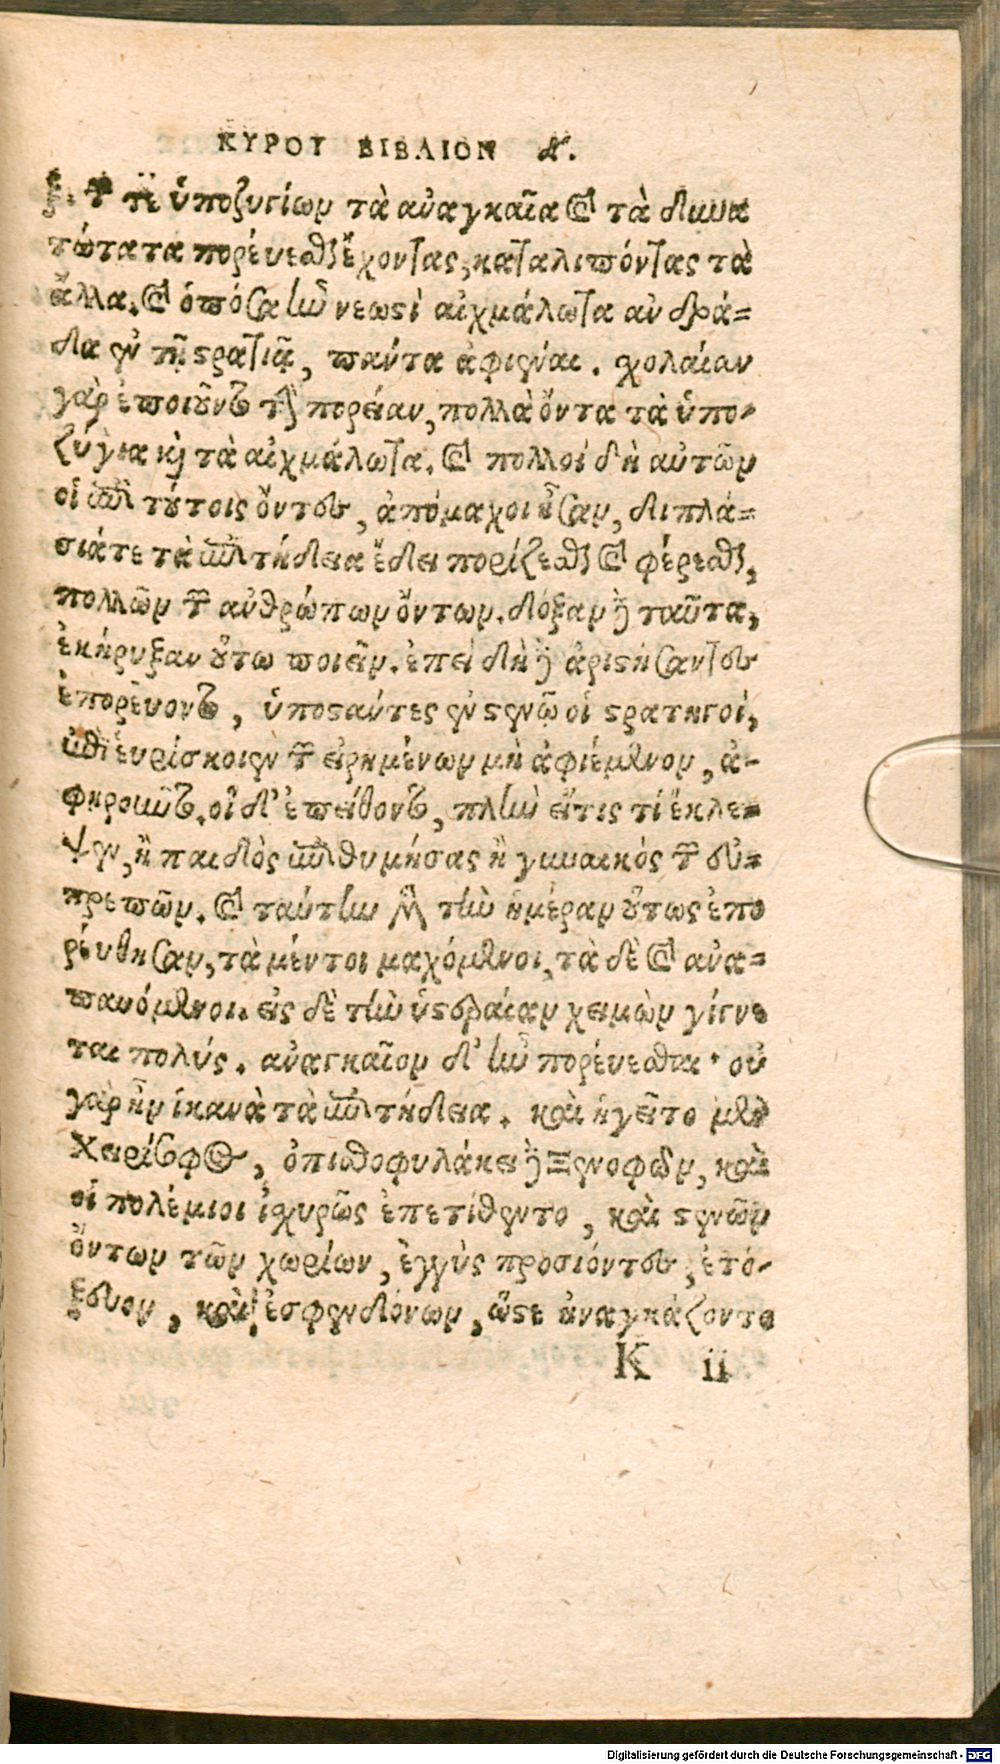 ΚΥΡΟΥ ΒΙΒΛΙΟΝ δ.
ξ. τ τε ὑποζυγίων τὰ ἀναγκαῖα καὶ τὰ δυνα
τώτατα πορεύεσθαι ἔχοντας, καταλιπόντας τὰ
ἄλλα. καὶ ὁπόσα ἦν νεωστὶ αἰχμάλωτα ἀνδρά=
δα ἐν τῇ στρατιᾷ, πάντα ἀφιέναι. χολαίαν
γὰρ ἐποιοῦντο τὴν πορείαν, πολλὰ ὄντα τὰ ὑπο-
ζύγια καὶ τὰ αἰχμάλωτα. καὶ πολλοί δὴ αὐτῶν
οἱ ἐπὶ τούτοις ὄντες, ἀπόμαχοι ἦσαν, διπλά=
σιά τε τὰ ἐπιτήδεια ἔδει πορίζεσθαι καὶ φέρεσθαι,
πολλῶν τῶν ἀνθρώπων ὄντων. δόξαν δὲ ταῦτα,
ἐκήρυξαν οὕτω ποιεῖν. ἐπειδὴ δὲ ἀριστήσαντες
ἐπορεύοντο, ὑποστάντες ἐν στενῷ οἱ στρατηγοί,
εἴ τι εὑρίσκοιεν τῶν εἰρημένων μὴ ἀφιέμενον, ἀ-
φῃροῦντο. οἱ δ' ἐπείθοντο, πλὴν εἴ τις τί ἔκλε=
ψεν, ἢ παιδὸς ἐπιθυμήσας ἢ γυναικός τῶν εὐ=
πρεπῶν. καὶ ταύτην μὲν τὴν ἡμέραν οὕτως ἐπο
ρεύθησαν, τὰ μέντοι μαχόμενοι, τὰ δὲ καὶ ἀνα=
παυόμενοι. εἰς δὲ τὴν ὑστεραίαν χειμὼν γίγνε
ται πολύς. ἀναγκαῖον δ' ἦν πορεύεσθαι · οὐ
γὰρ ἦν ἱκανὰ τὰ ἐπιτήδεια. καὶ ἡγεῖτο μὲν
Χειρίσοφος, ὀπισθοφυλάκει δὲ Ξενοφῶν, καὶ
οἱ πολέμιοι ἰσχυρῶς ἐπετίθεντο, καὶ στενῶν
ὄντων τῶν χωρίων, ἐγγὺς προσιόντες, ἐτό-
ξευον, καὶ ἐσφενδόνων, ὥστε ἠναγκάζοντο
K ii
Digitalisierung gefördert durch die Deutsche Forschungsgemeinschaft - DFG